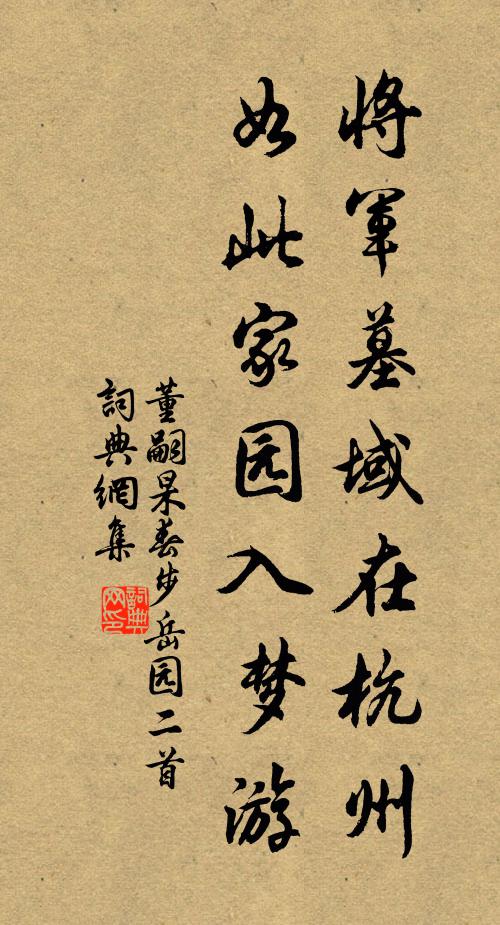 将军墓域在杭州
如此家园入梦游
董嗣杲春步岳园二首
詞典網集
詞典網印